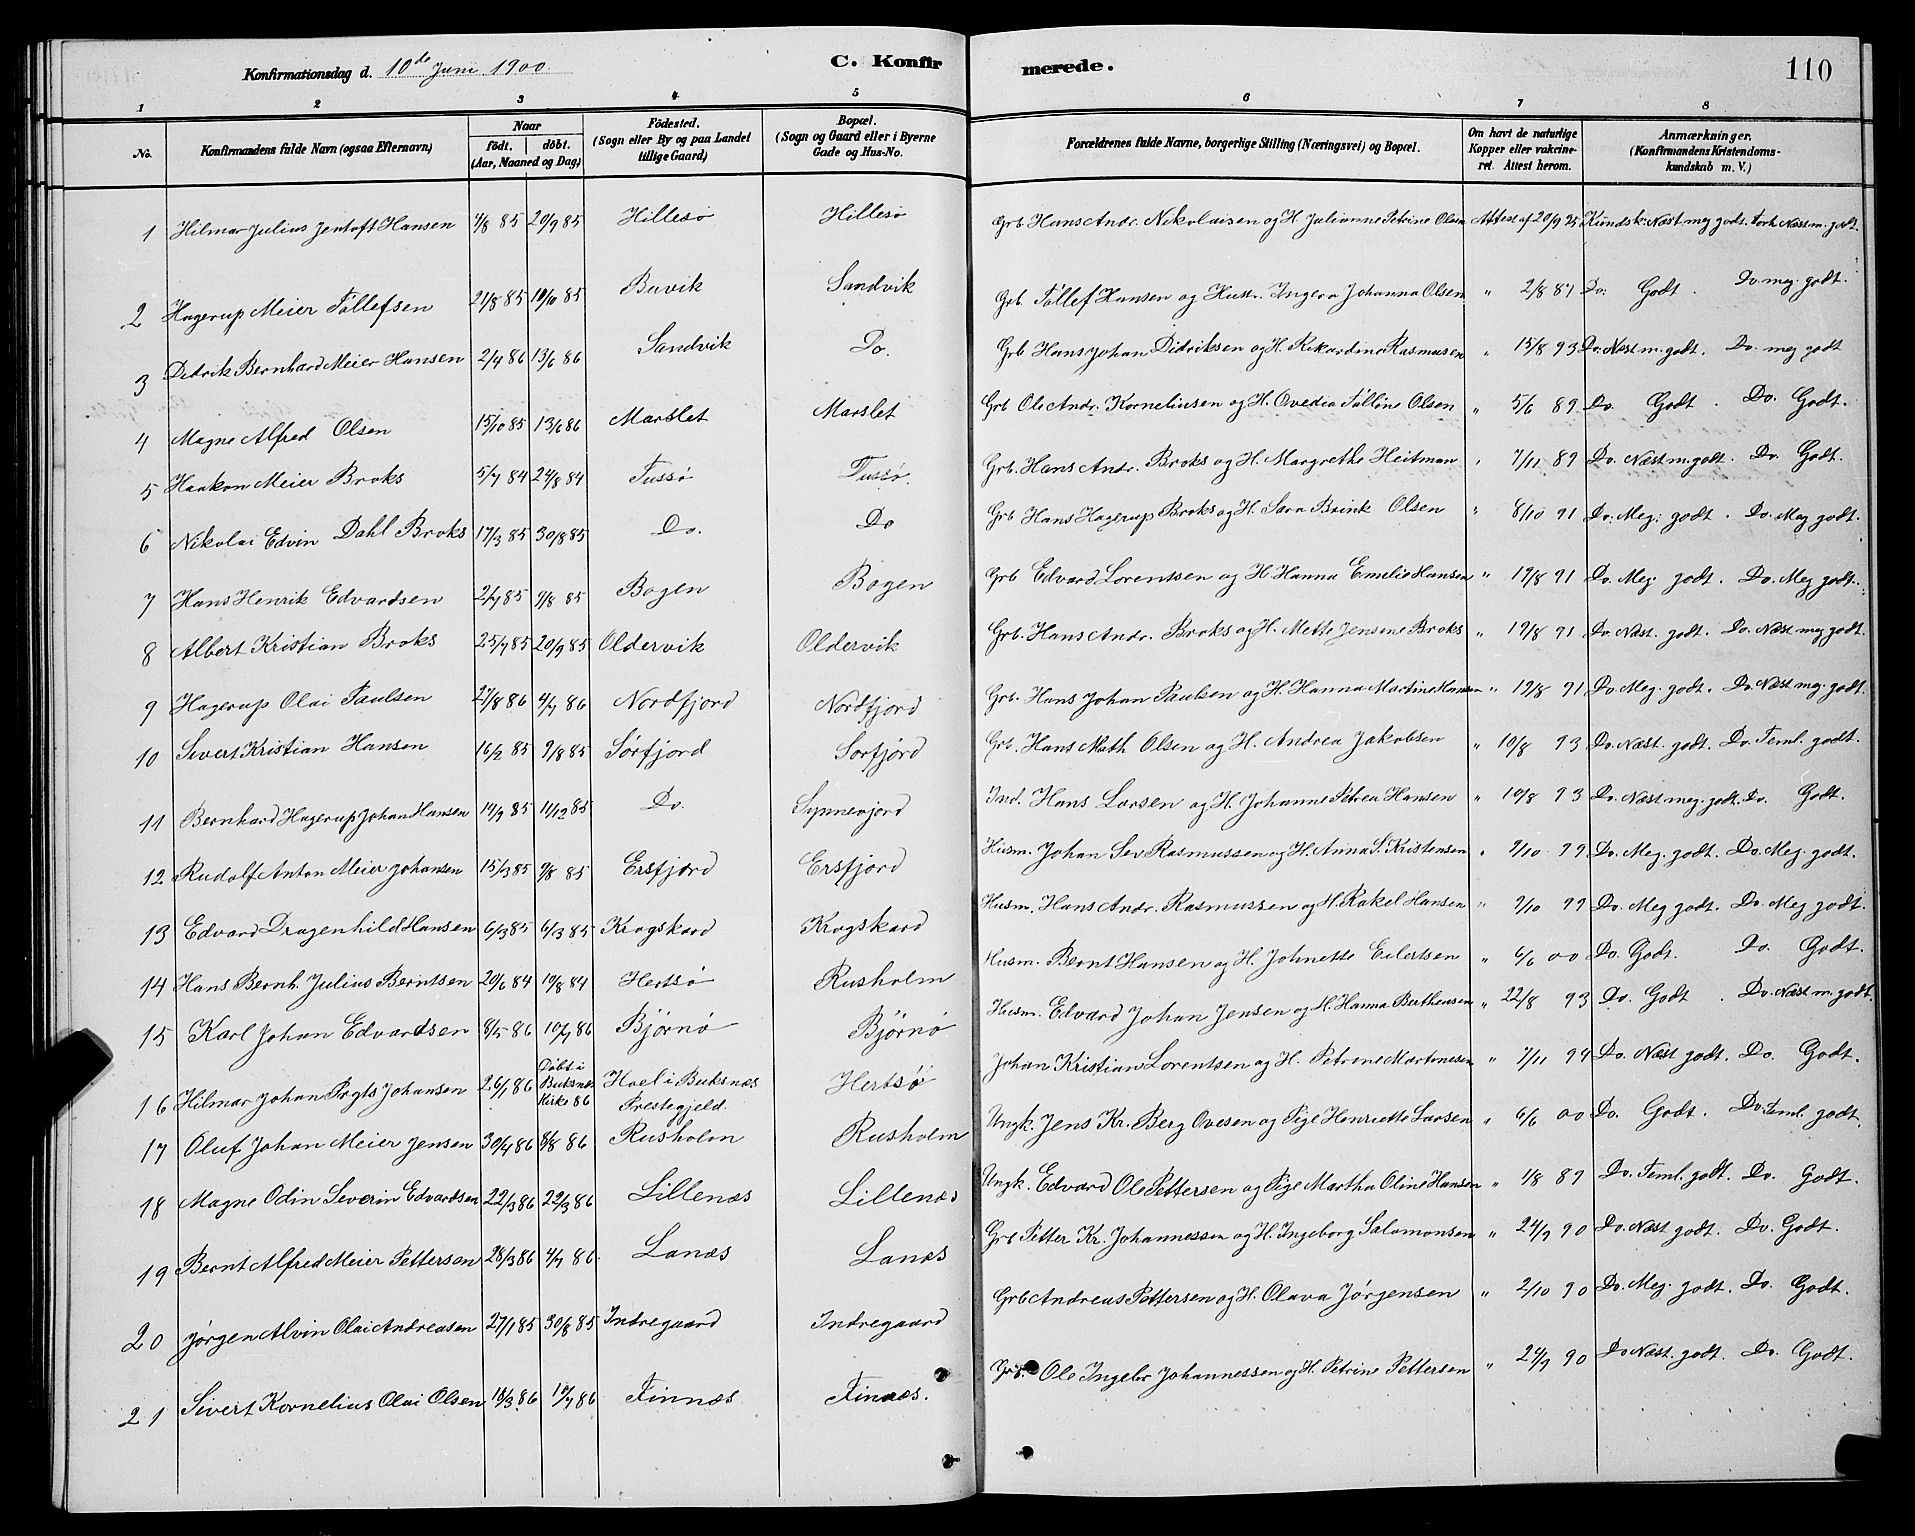 Konfirmationsdag d. 10de Juni 1900. C. Konfirmerede. 110
1 2 3 4 5 6 7 8
No. Konfirmandens fulde Navn (ogsaa Efternavn) Naar födt. döbt. (Aar, Maaned og Dag) Födested. (Sogn eller By og paa Landet tillige Gaard) Bopæl. (Sogn og Gaard eller i Byerne Gade og Hus-No. Forældrenes fulde Navne, borgerlige Stilling (Næringsvei) og Bopæl. Om havt de naturlige Kopper eller vakcineret. Attest herom. Anmærkninger. (Konfirmandens Kristendomskundskab m. V.)
1 Hilmar Julius Jentoft Hansen 4/8 85 20/9 85 Hillesø Hillesø Grb Hans Andr. Nikolaisen og H. Julianne Petrine Olsen Attest af 20/9 95 Kundsk: Næst meg godt. Forh Næst m. godt.
2 Hagerup Meier Tollefsen 21/8 85 19/10 85 Buvik Sandvik Grb Tollef Hansen og Hustr. Ingera Johanna Olsen " 2/8 87 Do. Godt. Do. meg. godt.
3 Didrik Bernhard Meier Hansen 2/4 86 13/6 86 Sandvik Do. Grb Hans Johan Didriksen og H. Rikardine Rasmusen " 15/8 93 Do. Næst m. godt. Do. meg godt
4 Magne Alfred Olsen 15/10 85 13/6 86 Marslet Marslet Grb Ole Andr. Korneliusen og H. Ovedia Tolline Olsen " 5/6 89 Do. Godt. Do. Godt.
5 Haakon Meier Broks 5/7 84 24/8 84 Tussø Tussø. Grb. Hans Andr. Broks og H. Margrethe Heitman " 7/11 89 Do. Næst m. godt. Do. Godt.
6 Nikolai Edvin Dahl Broks 17/3 85 30/8 85 Do. Do Grb Hans Hagerup Broks og H. Sara Brink Olsen " 8/10 91 Do. Meg. godt. Do. Meg godt.
7 Hans Henrik Edvardsen 2/7 85 9/8 85 Bogen Bogen Grb Edvard Lorentsen og H Hanna Emelie Hansen " 19/8 91 Do. Meg. godt. Do. Meg godt.
8 Albert Kristian Broks 25/7 85 20/9 85 Oldervik Oldervik Grb. Hans Andr. Broks og H. Mette Jensine Broks " 19/8 91 Do. Næst. godt. Do. Næst meg godt.
9 Hagerup Olai Paulsen 27/8 86 4/7 86 Nordfjord Nordfjord Grb. Hans Johan Paulsen og H. Hanna Martine Hansen " 19/8 91 Do. Meg. godt. Do. Næst meg. godt.
10 Sivert Kristian Hansen 16/2 85 9/8 85 Sørfjord Sorfjord Grb. Hans Math Olsen og H. Andrea Jakobsen " 10/8 93 Do. Næst. godt. Do. Teml. godt.
11 Bernhard Hagerup Johan Hansen 14/9 85 11/12 85 Do. Synnevjord Ind. Hans Larsen og H. Johanne Petrea Hansen " 10/8 93 Do. Næst meg. godt. Do. Godt.
12 Rudolf Anton Meier Johansen 15/3 85 9/8 85 Ersfjord Ersfjord Husm. Johan Sev Rasmussen og H. Anna S. Kristensen " 9/10 99 Do. Meg. godt. Do. Meg. godt.
13 Edvard Dragenhild Hansen 6/3 85 6/3 85 Krogskard Krogskard Husm. Hans Andr. Rasmussen og H. Rakel Hansen " 9/10 99 Do. Meg godt. Do. Meg godt.
14 Hans Bernh. Julius Berntsen 20/6 84 10/8 84 Hertsø Rusholm Husm. Bernt Hansen og H. Johnette Eilertsen " 6/6 00 Do. Godt. Do. Godt.
15 Karl Johan Edvardsen 8/5 86 10/7 86 Bjørnø Bjørnø Husm. Edvard Johan Jensen og H. Hanna Bertheusen " 22/8 93 Do. Godt. Do. Næst m. godt.
16 Hilmar Johan Johansen 26/1 86 Döbt i Buksnes Kirke 86 Hoel i Buksnæs Prestegjeld. Hertsø Johan Kristian Lorentsen og H. Petrine Martinesen " 7/11 94 Do. Næst godt. Do. Godt.
17 Oluf Johan Meier Jensen 30/4 86 8/8 86 Rusholm Rusholm Ungk. Jens Kr. Berg Ovesen og Pige Henriette Larsen " 6/6 00 Do. Godt. Do. Teml. godt.
18 Magne Odin Severin Edvardsen 22/3 86 22/3 86 Lillenæs Lillenæs Ungk. Edvard Ole Pettersen og Pige Martha Oline Hansen " 1/8 89 Do. Teml. godt. Do. Godt.
19 Bernt Alfred Meier Pettersen 28/3 86 4/7 86 Lanæs Lanæs Grb Petter Kr. Johannessen og H. Ingeborg Salomonsen " 24/9 90 Do. Næst godt. Do. Godt.
20 Jørgen Alvin Olai Andreasen 27/1 85 30/8 85 Indregaard Indregaard Grb Andreas Pettersen og H. Olava Jørgensen " 2/10 90 Do. Meg. godt. Do. Godt.
21 Sivert Kornelius Olai Olsen 18/3 86 19/7 86 Finnæs Finnæs. Grb. Ole Ingebr Johannessen og H. Petrine Pettersen " 24/9 90 Do Næst. godt Do. Godt.